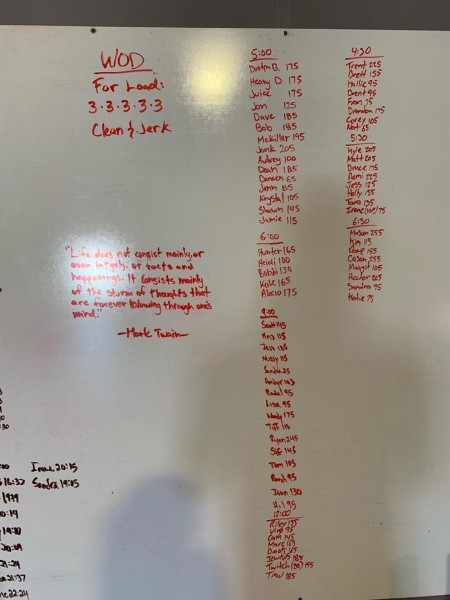 WOD
For Load:
3.3.3.3.3
Clean & Jerk
"Life does not consist mainly, or
even largely, of facts and
happenings. It consists mainly
of the storm of thoughts that
are forever blowing through one's
mind."
-Mark Twain
5:00
Dustin B. 175
Heavy D 175
Juice 175
Jon 125
Dave 185
Bob 185
McKiller 195
Jank 205
Audrey 100
Dean 185
65
Jenn 85
Krystal 105
Shawn 145
Jamie 115
6:00
Hunter 165
Heidi 100
Bobbi 130
Kole 165
Alecio 175
9:00
Scott 145
115
Jess
115
Sandra
Rachel 95
Lisa 95
Woody 175
Ryan 245
145
Tom 185
95
Juan 130
95
12:00
Riley 155
95
Cam 145
Marc 165
165
185
Twitch 145
Trav 185
4:30
Trent 225
Brett 155
Hallie 95
Brent 95
Fran 75
Brandon 175
Corey 105
Nat 65
5:30
Kyle 205
Matt 205
Bruce 175
Remi 225
Jess 125
Holly 155
Tara 135
75
6:30
Mason 255
Kim 115
155
Cason 255
Margit 105
Hector 205
Sandra 95
Katie 75
Irma 20:15
16:32 Sandra 19:05